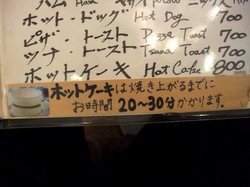 ハム Ham
ホット・ドッグ Hot Dog 700
ピザ・トースト Pizza Toast 700
ツナ・トースト Tsuna Toast 700
ホットケーキ Hot Cake 800
ホットケーキは焼き上がるまでに
お時間20〜30分かかります.